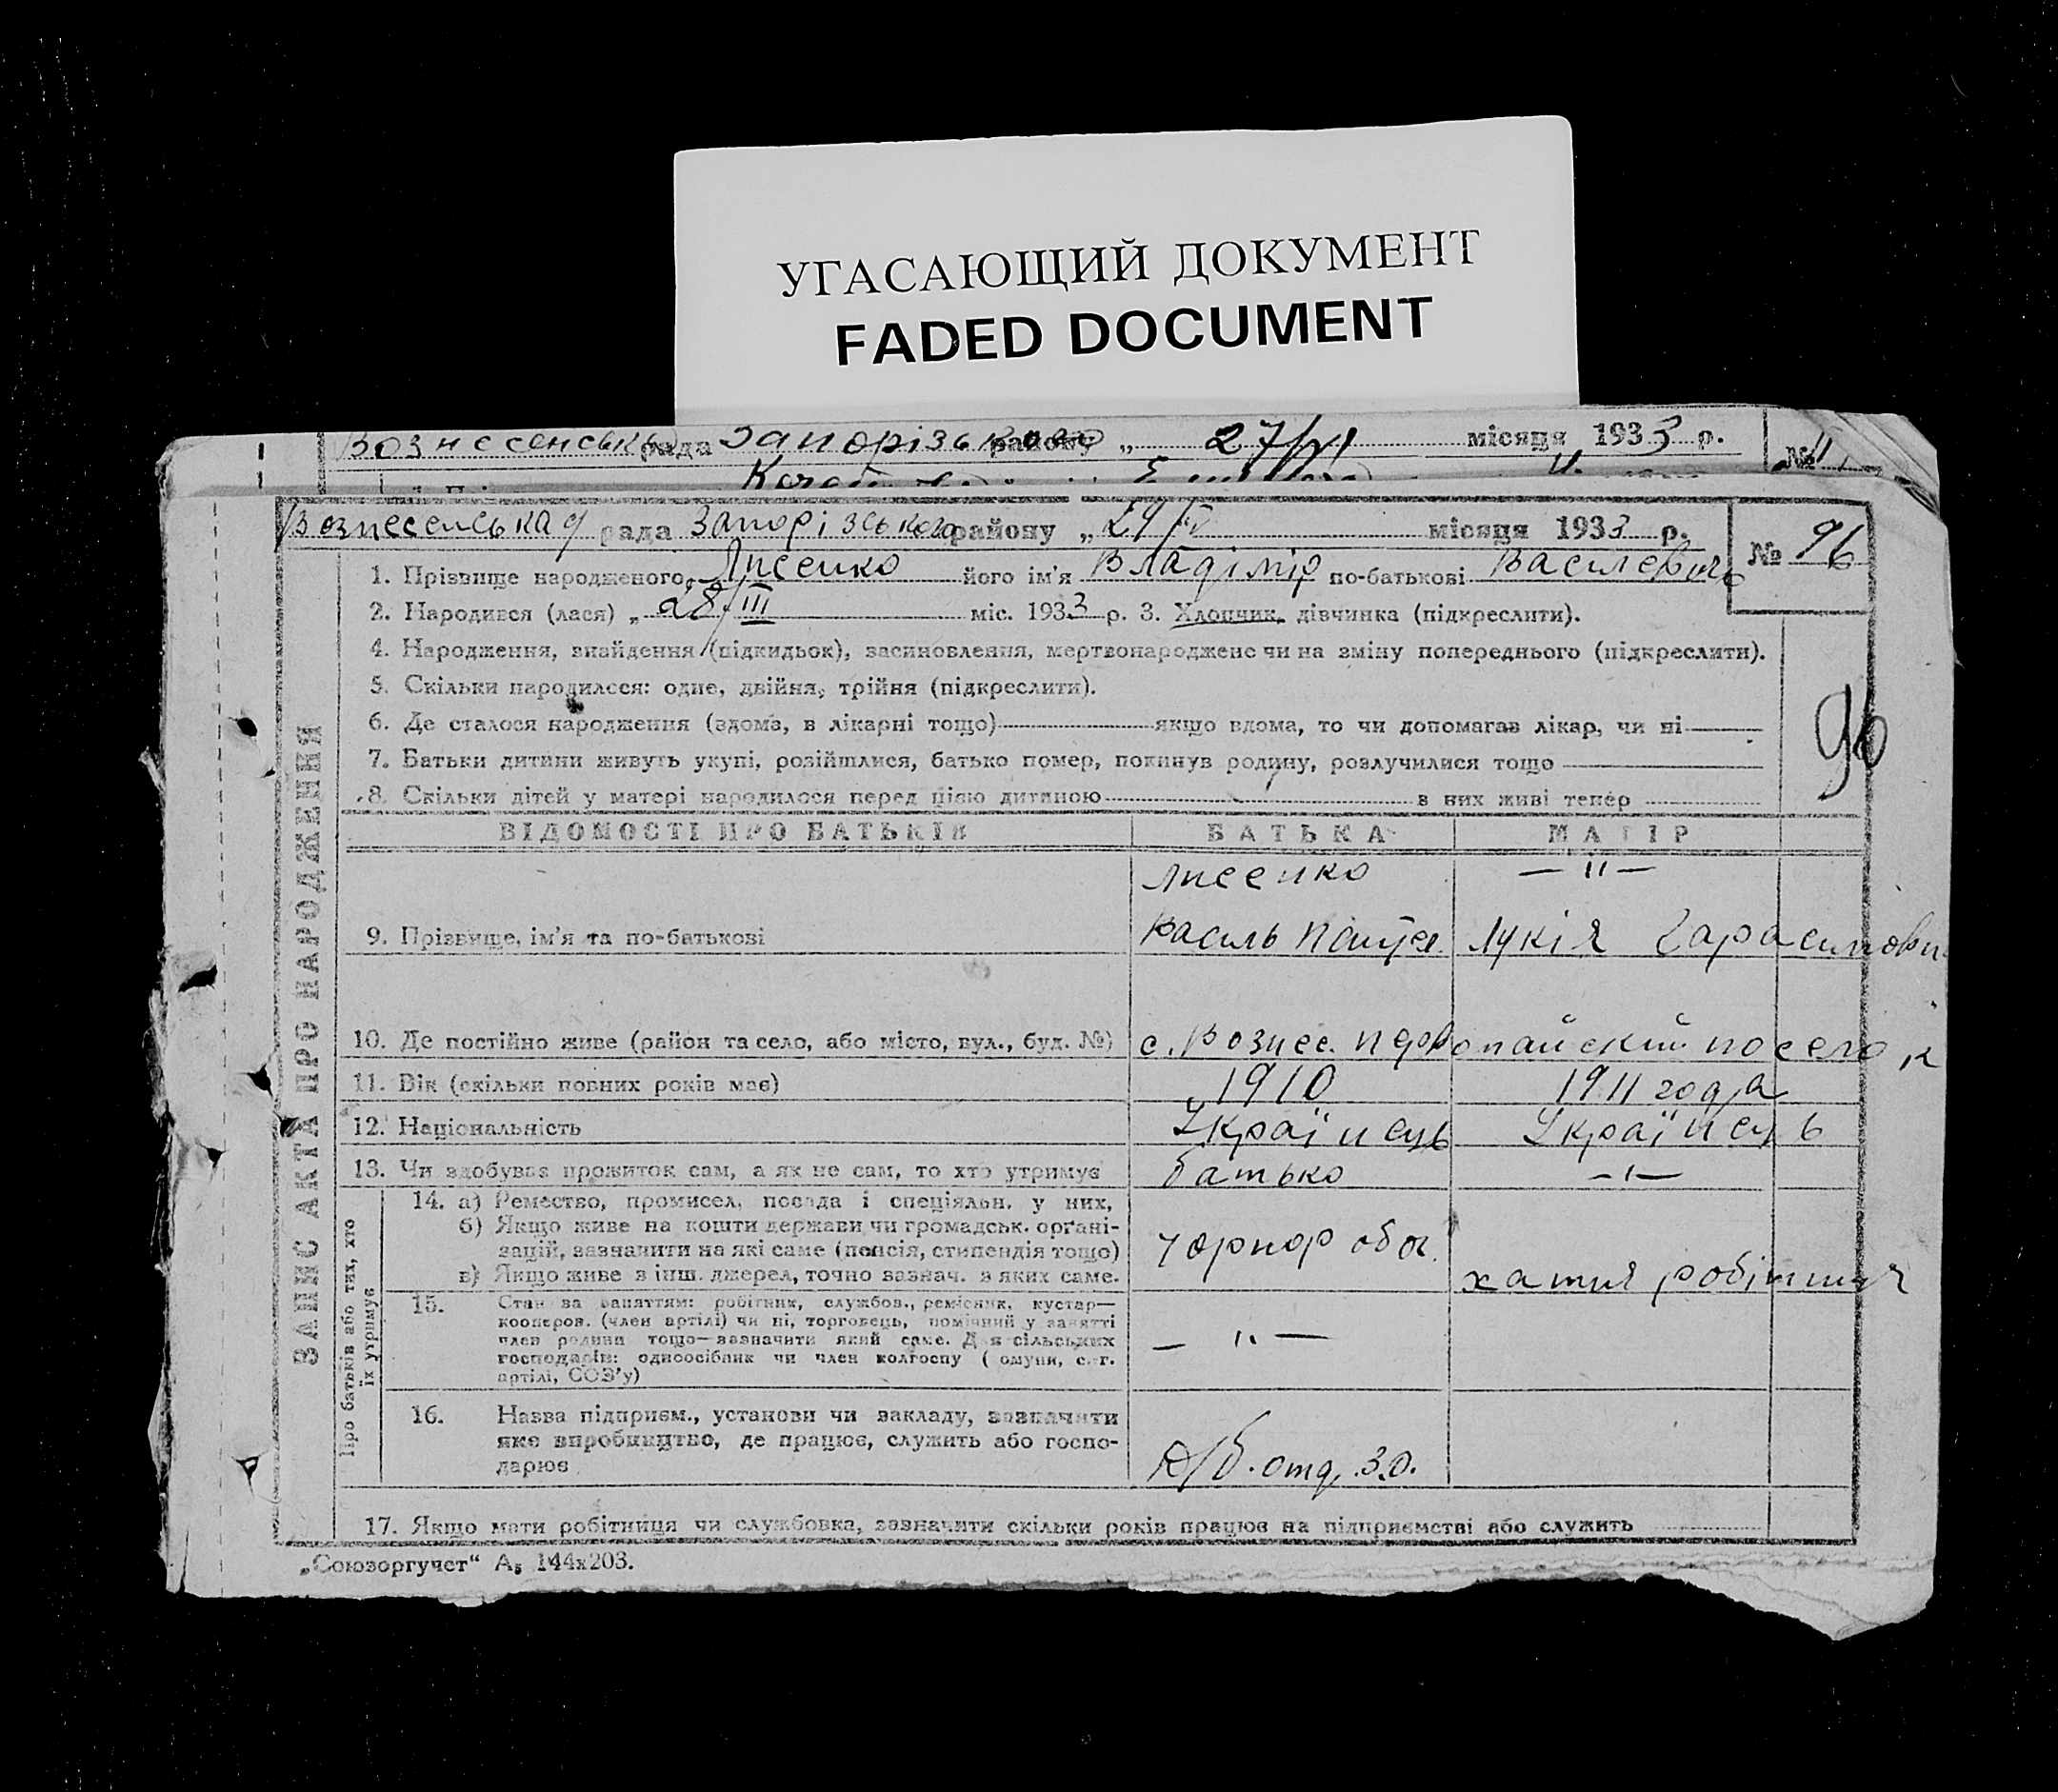 УГАСАЮЩИЙ ДОКУМЕНТ
FADED DOCUMENT
Вознесенська рада Запорізького району „ 27/VI місяця 1933 р. №
Вознесенська рада Запорізького району „ 24/IV місяця 1933 р. № 96
1. Прізвище народженого Лисенко його ім'я Владімір по-батькові Василевич
2. Народився (лася) „ 28/III міс. 1933 р. 3. Хлопчик, дівчинка (підкреслити).
4. Народження, знайдення (підкидьок), засиновлення, мертвонароджене чи на зміну попереднього (підкреслити).
5. Скільки народилося: одне, двійня, трійня (підкреслити).
96
6. Де сталося народження (вдома, в лікарні тощо) якщо вдома, то чи допомагав лікар, чи ні
7. Батьки дитини живуть укупі, розійшлися, батько помер, покинув родину, розлучилися тощо
8. Скільки дітей у матері народилося перед цією дитиною в них живі тепер
ЗАПИС АКТА ПРО НАРОДЖЕННЯ
ВІДОМОСТІ ПРО БАТЬКІВ БАТЬКА МАТІР
Лисенко — " —
9. Прізвище, ім'я та по-батькові Василь Лукія
10. Де постійно живе (район та село, або місто, вул., буд. №) с. Вознес. поселок
11. Вік (скільки повних років має) 1910 1911 года
12. Національність Українець Українець
13. Чи здобував прожиток сам, а як не сам, то хто утримує батько — " —
Про батьків або тих, хто їх утримує
14. а) Ремество, промисел, посада і спеціяльн. у них,
б) Якщо живе на кошти держави чи громадськ. органі-
зацій, зазначити на які саме (пенсія, стипендія тощо)
в) Якщо живе з інш. джерел, точно зазнач. з яких саме.
15. Стан за заняттям: робітник, службов., ремісник, кустар—
кооперов. (член артілі) чи ні, торговець, помічний у занятті
член родини тощо—зазначити який саме. Для сільських
господарів: одноосібник чи член колгоспу (комуни, с.-г.
артілі, СОЗ'у) — " —
16. Назва підприєм., установи чи закладу, зазначити
яке виробництво, де працює, служить або госпо-
дарює
17. Якщо мати робітниця чи службовка, зазначити скільки років працює на підприємстві або служить
„Союзоргучет“ А5 144х203.